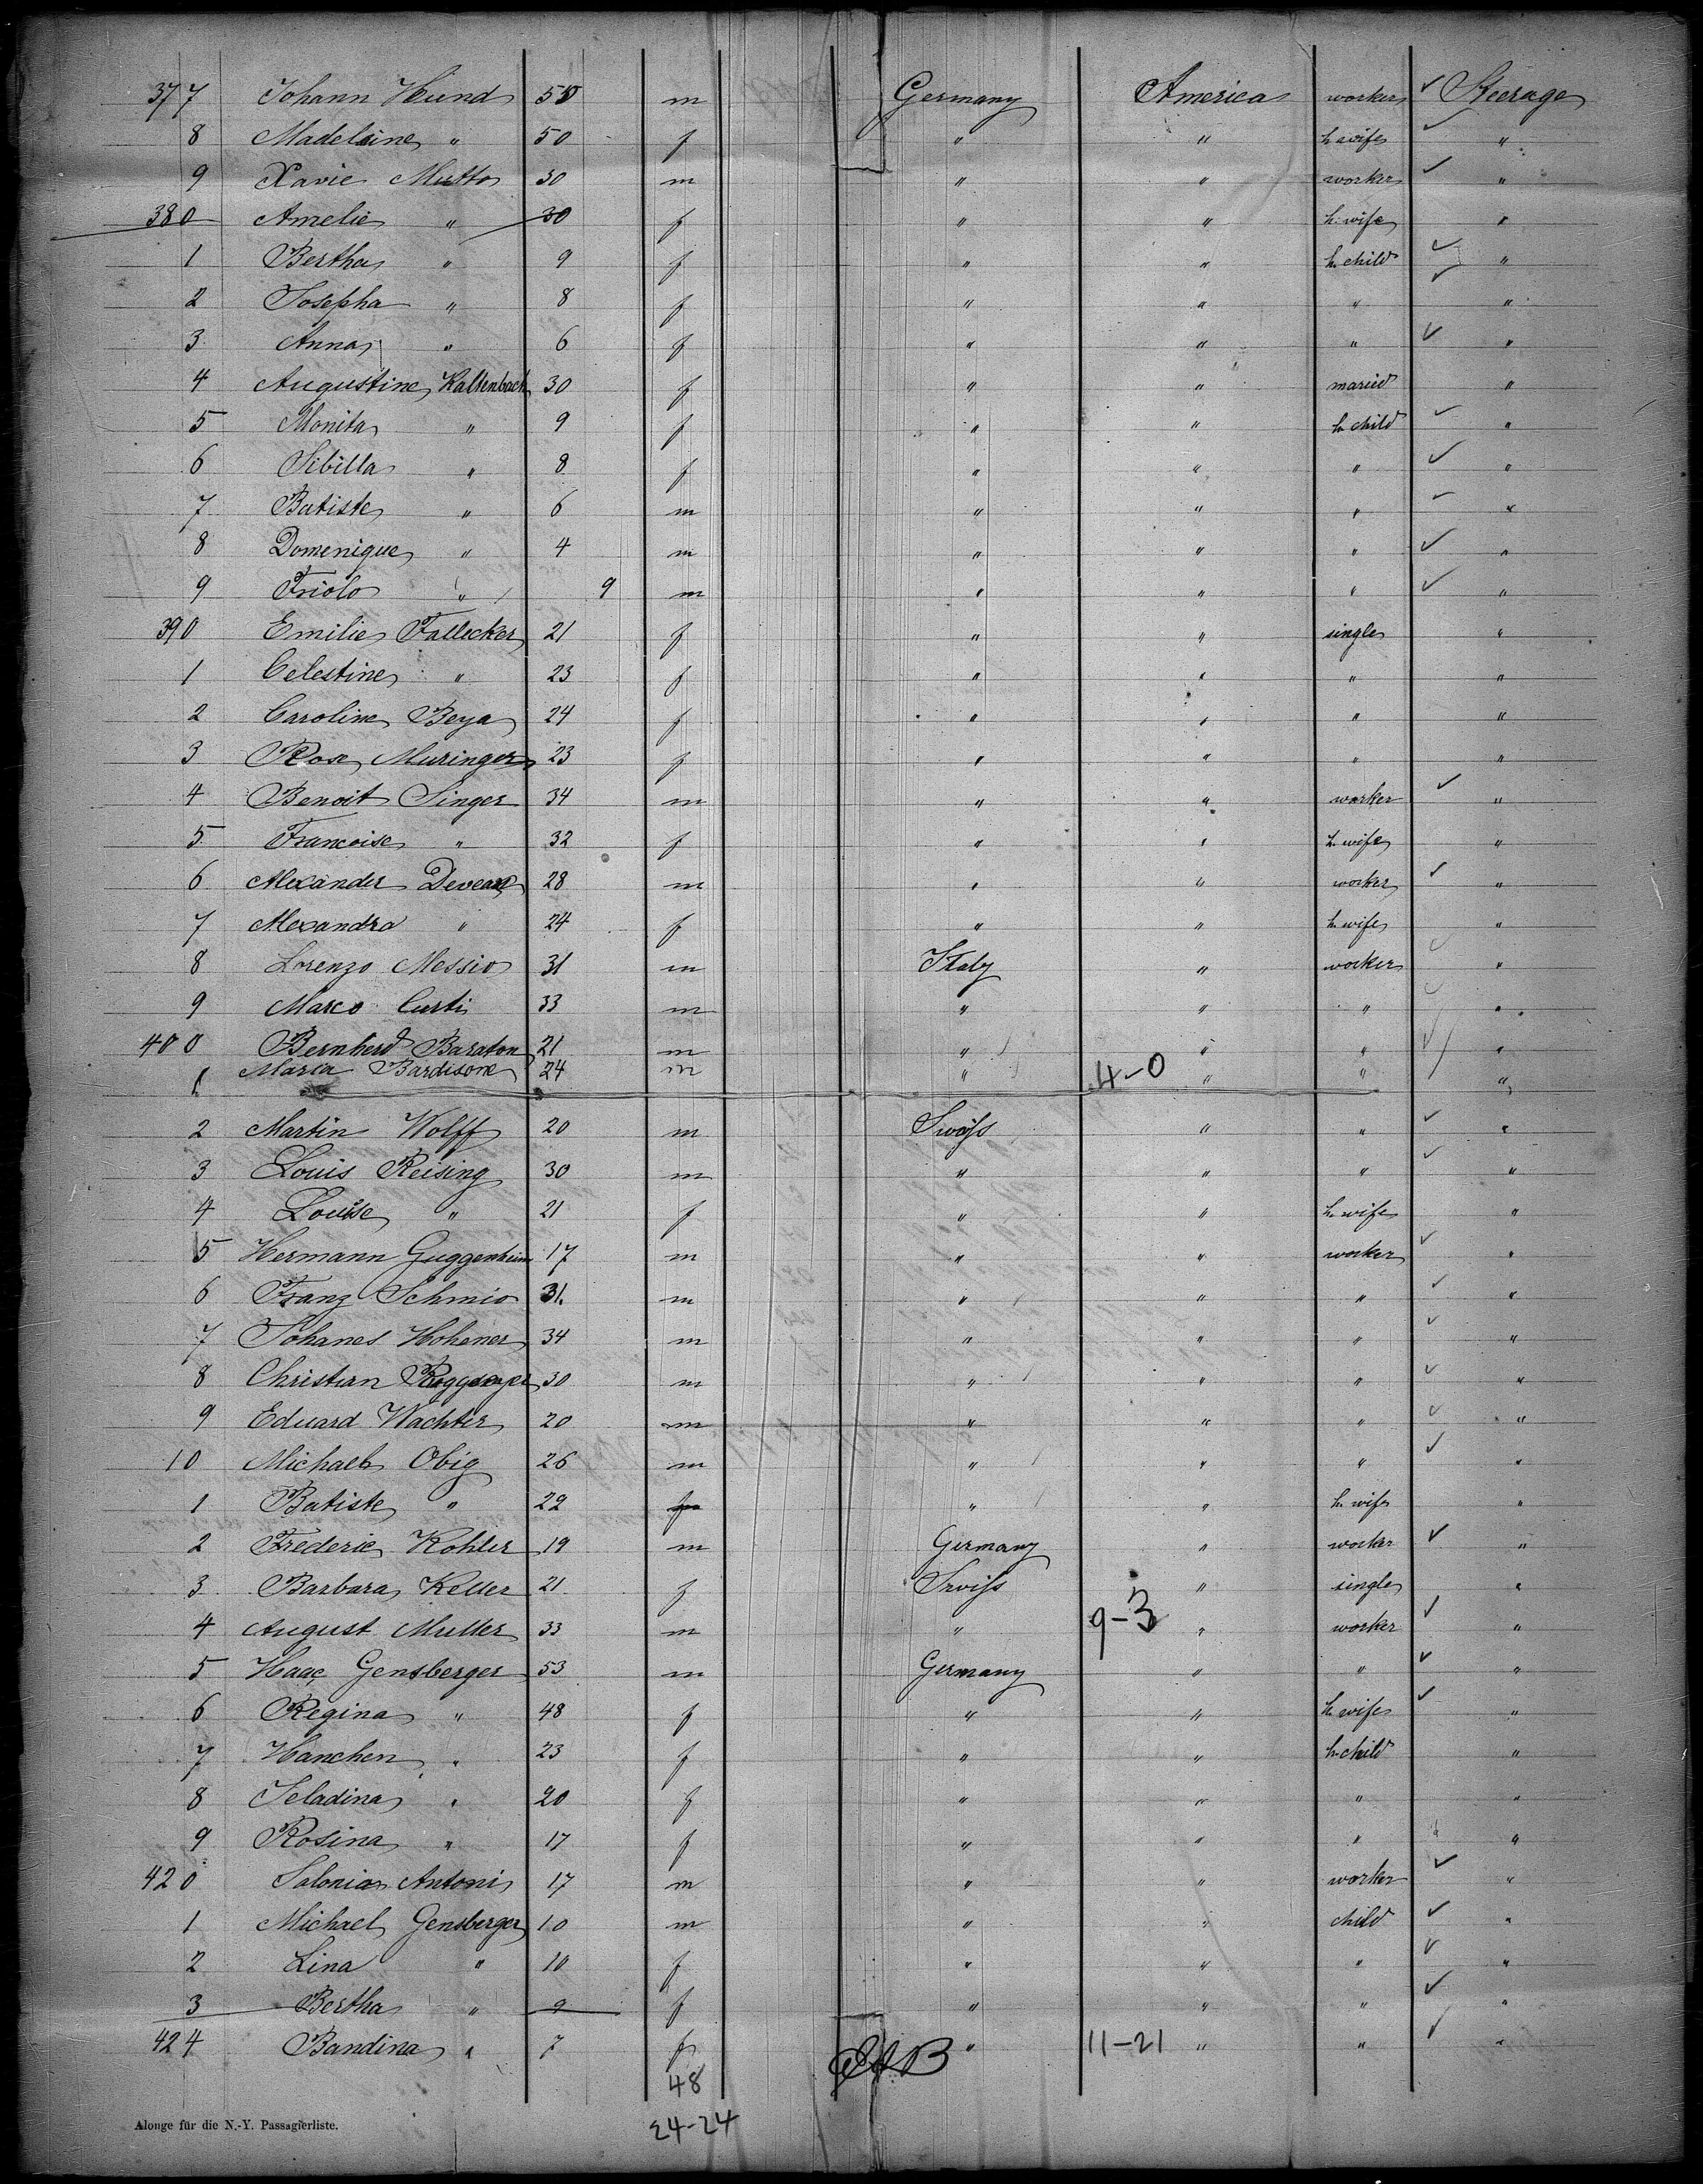 377 Johann Hund 50 m Germany America worker ✓ Steerage
8 Madeleine " 50 f " " h wife ✓ "
9 Xavie Mutto 30 m " " worker ✓ "
380 Amelie " 30 f " " h. wife "
1 Bertha " 9 f " " h. child ✓ "
2 Josepha " 8 f " " " ✓ "
3 Anna " 6 f " " " ✓ "
4 Augustine Kaltenbach 30 f " " maried "
5 Monita " 9 f " " h child ✓ "
6 Sibilla " 8 f " " " ✓ "
7 Batiste " 6 m " " " ✓ "
8 Domenique " 4 m " " " ✓ "
9 Friolo " 9 m " " " ✓ "
390 Emilie Fallecker 21 f " " single "
1 Celestine " 23 f " " " "
2 Caroline Beya 24 f " " " "
3 Rose Muringer 23 f " " " "
4 Benoit Singer 34 m " " worker ✓ "
5 Francoise " 32 f " " h. wife "
6 Alexander Deveaux 28 m " " worker ✓ "
7 Alexandra " 24 f " " h. wife "
8 Lorenzo Messio 31 m Italy " worker ✓ "
9 Marco Curti 33 m " " " ✓ "
400 Bernherd Baraton 21 m " " " ✓ "
1 Maria Bardisone 24 m " 4-0 " " "
2 Martin Wolff 20 m Swiss " " ✓ "
3 Louis Reising 30 m " " " ✓ "
4 Louise " 21 f " " h. wife "
5 Hermann Guggenheim 17 m " " worker ✓ "
6 Franz Schmid 31. m " " " ✓ "
7 Johanes Hohener 34 m " " " ✓ "
8 Christian 30 m " " " ✓ "
9 Eduard Wachter 20 m " " " ✓ "
10 Michael Obig 26 m " " " ✓ "
1 Batiste " 22 f " " h. wife "
2 Frederic Kohler 19 m Germany " worker ✓ "
3 Barbara Keller 21 f Swiss " single "
4 August Muller 33 m " 9-3 " worker ✓ "
5 Isaac Gensberger 53 m Germany " " ✓ "
6 Regina " 48 f " " h. wife ✓ "
7 Hanchen " 23 f " " h. child "
8 Seladina " 20 f " " " "
9 Rosina " 17 f " " " "
420 Salonia Antoni 17 m " " worker ✓ "
1 Michael Gensberger 10 m " " child ✓ "
2 Lina " 10 f " " " ✓ "
3 Bertha " 9 f " " " ✓ "
424 Bandina " 7 f " 11-21 " " ✓ "
48
24-24
Alonge für die N.-Y. Passagierliste.